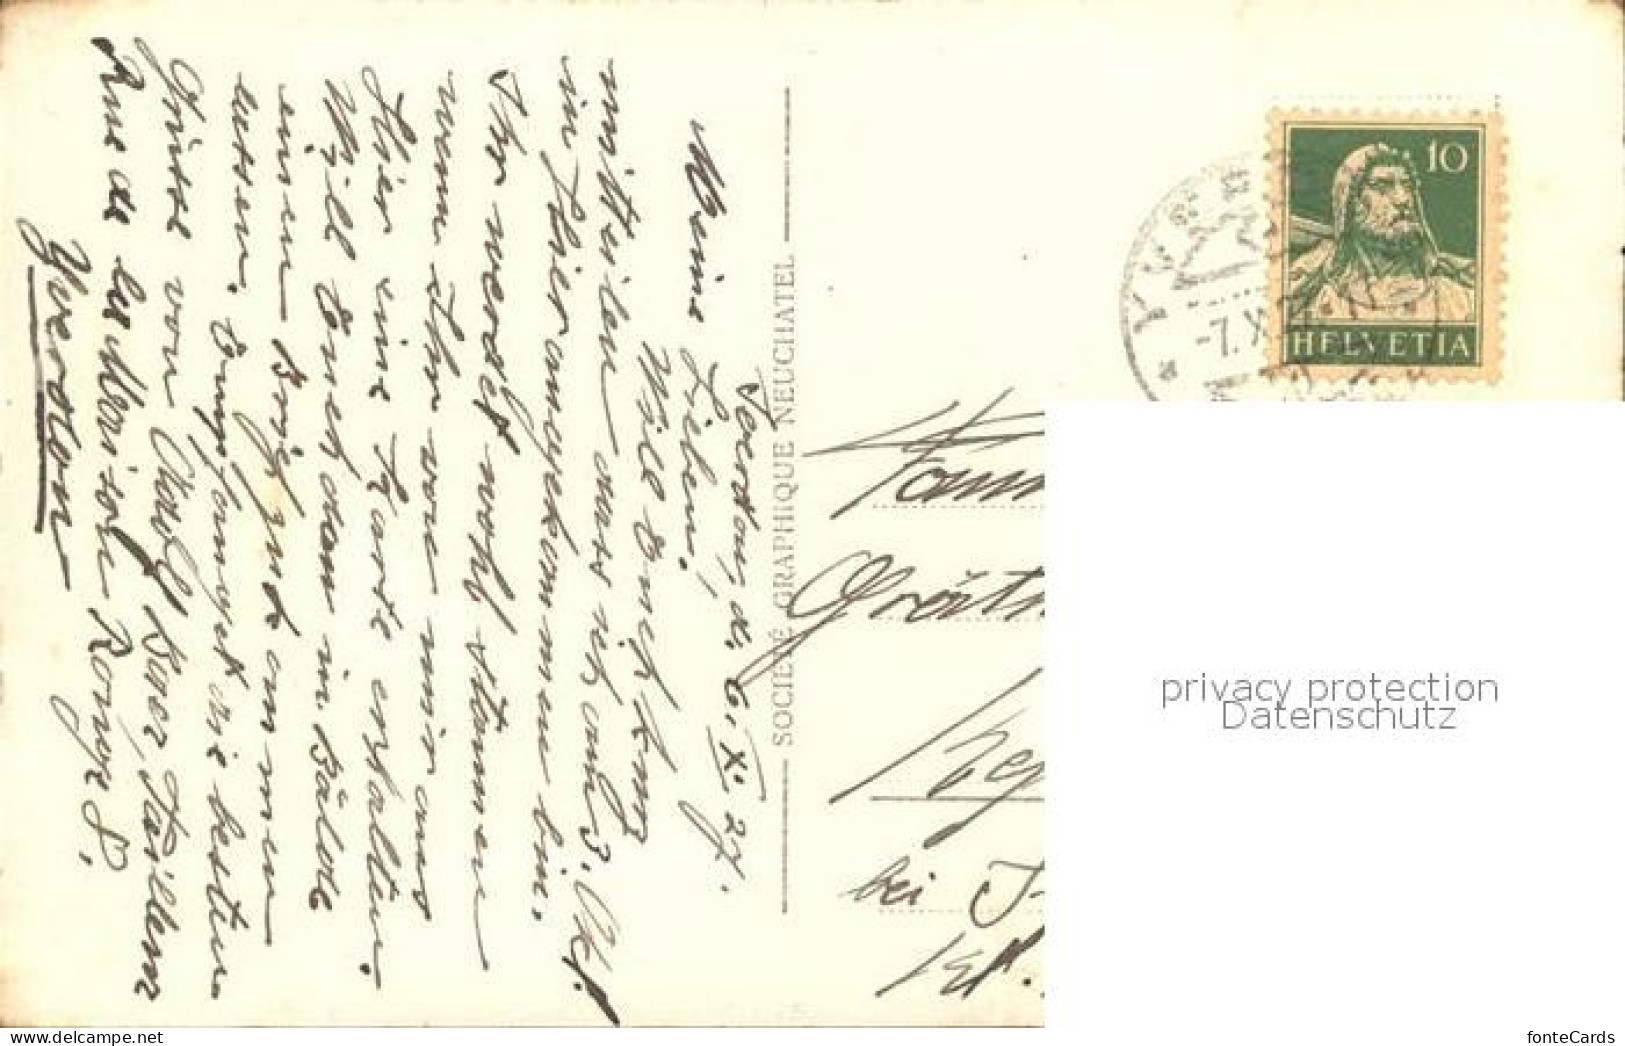 Yverdon, d. 6. X. 27.
Meine Lieben!
Will Euch kurz
mitteilen dass ich am 3. Okt.
in hier angekommen bin.
Ihr werdet wohl staunen
wenn Ihr von mir aus
hier eine Karte erhaltet.
Will Euch dann in Bälde
einen Brief zukommen
lassen. Empfanget die besten
Grüsse von
Rue de la Maison Rouge 8.
Yverdon
SOCIÉTÉ GRAPHIQUE NEUCHATEL
10
HELVETIA
-7. X
bei
privacy protection
Datenschutz
fonteCards